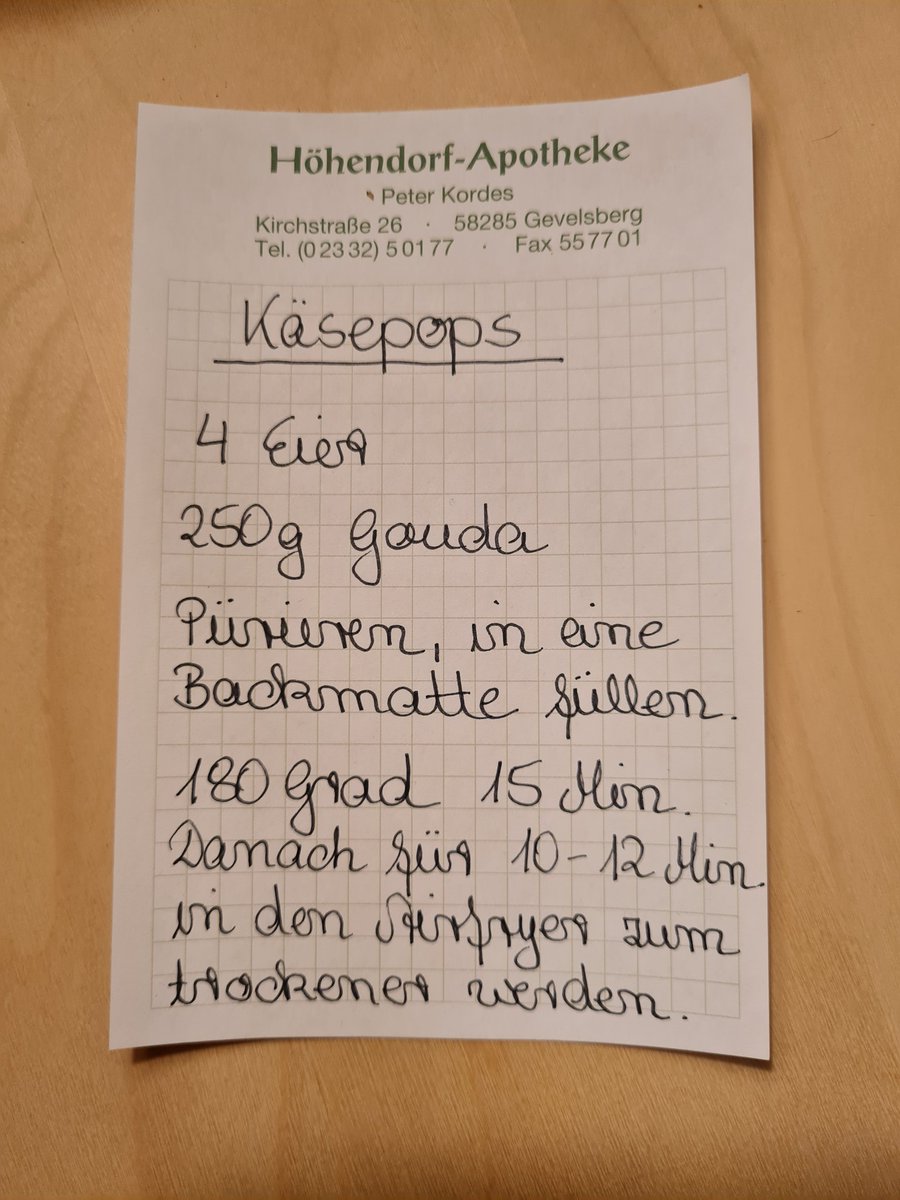 Höhendorf-Apotheke
Peter Kordes
Kirchstraße 26 · 58285 Gevelsberg
Tel. (0 23 32) 5 01 77 · Fax 55 77 01
Käsepops
4 Eier
250g Gouda
Pürieren, in eine
Backmatte füllen.
180 Grad 15 Min.
Danach für 10-12 Min.
in den Airfryer zum
trockener werden.